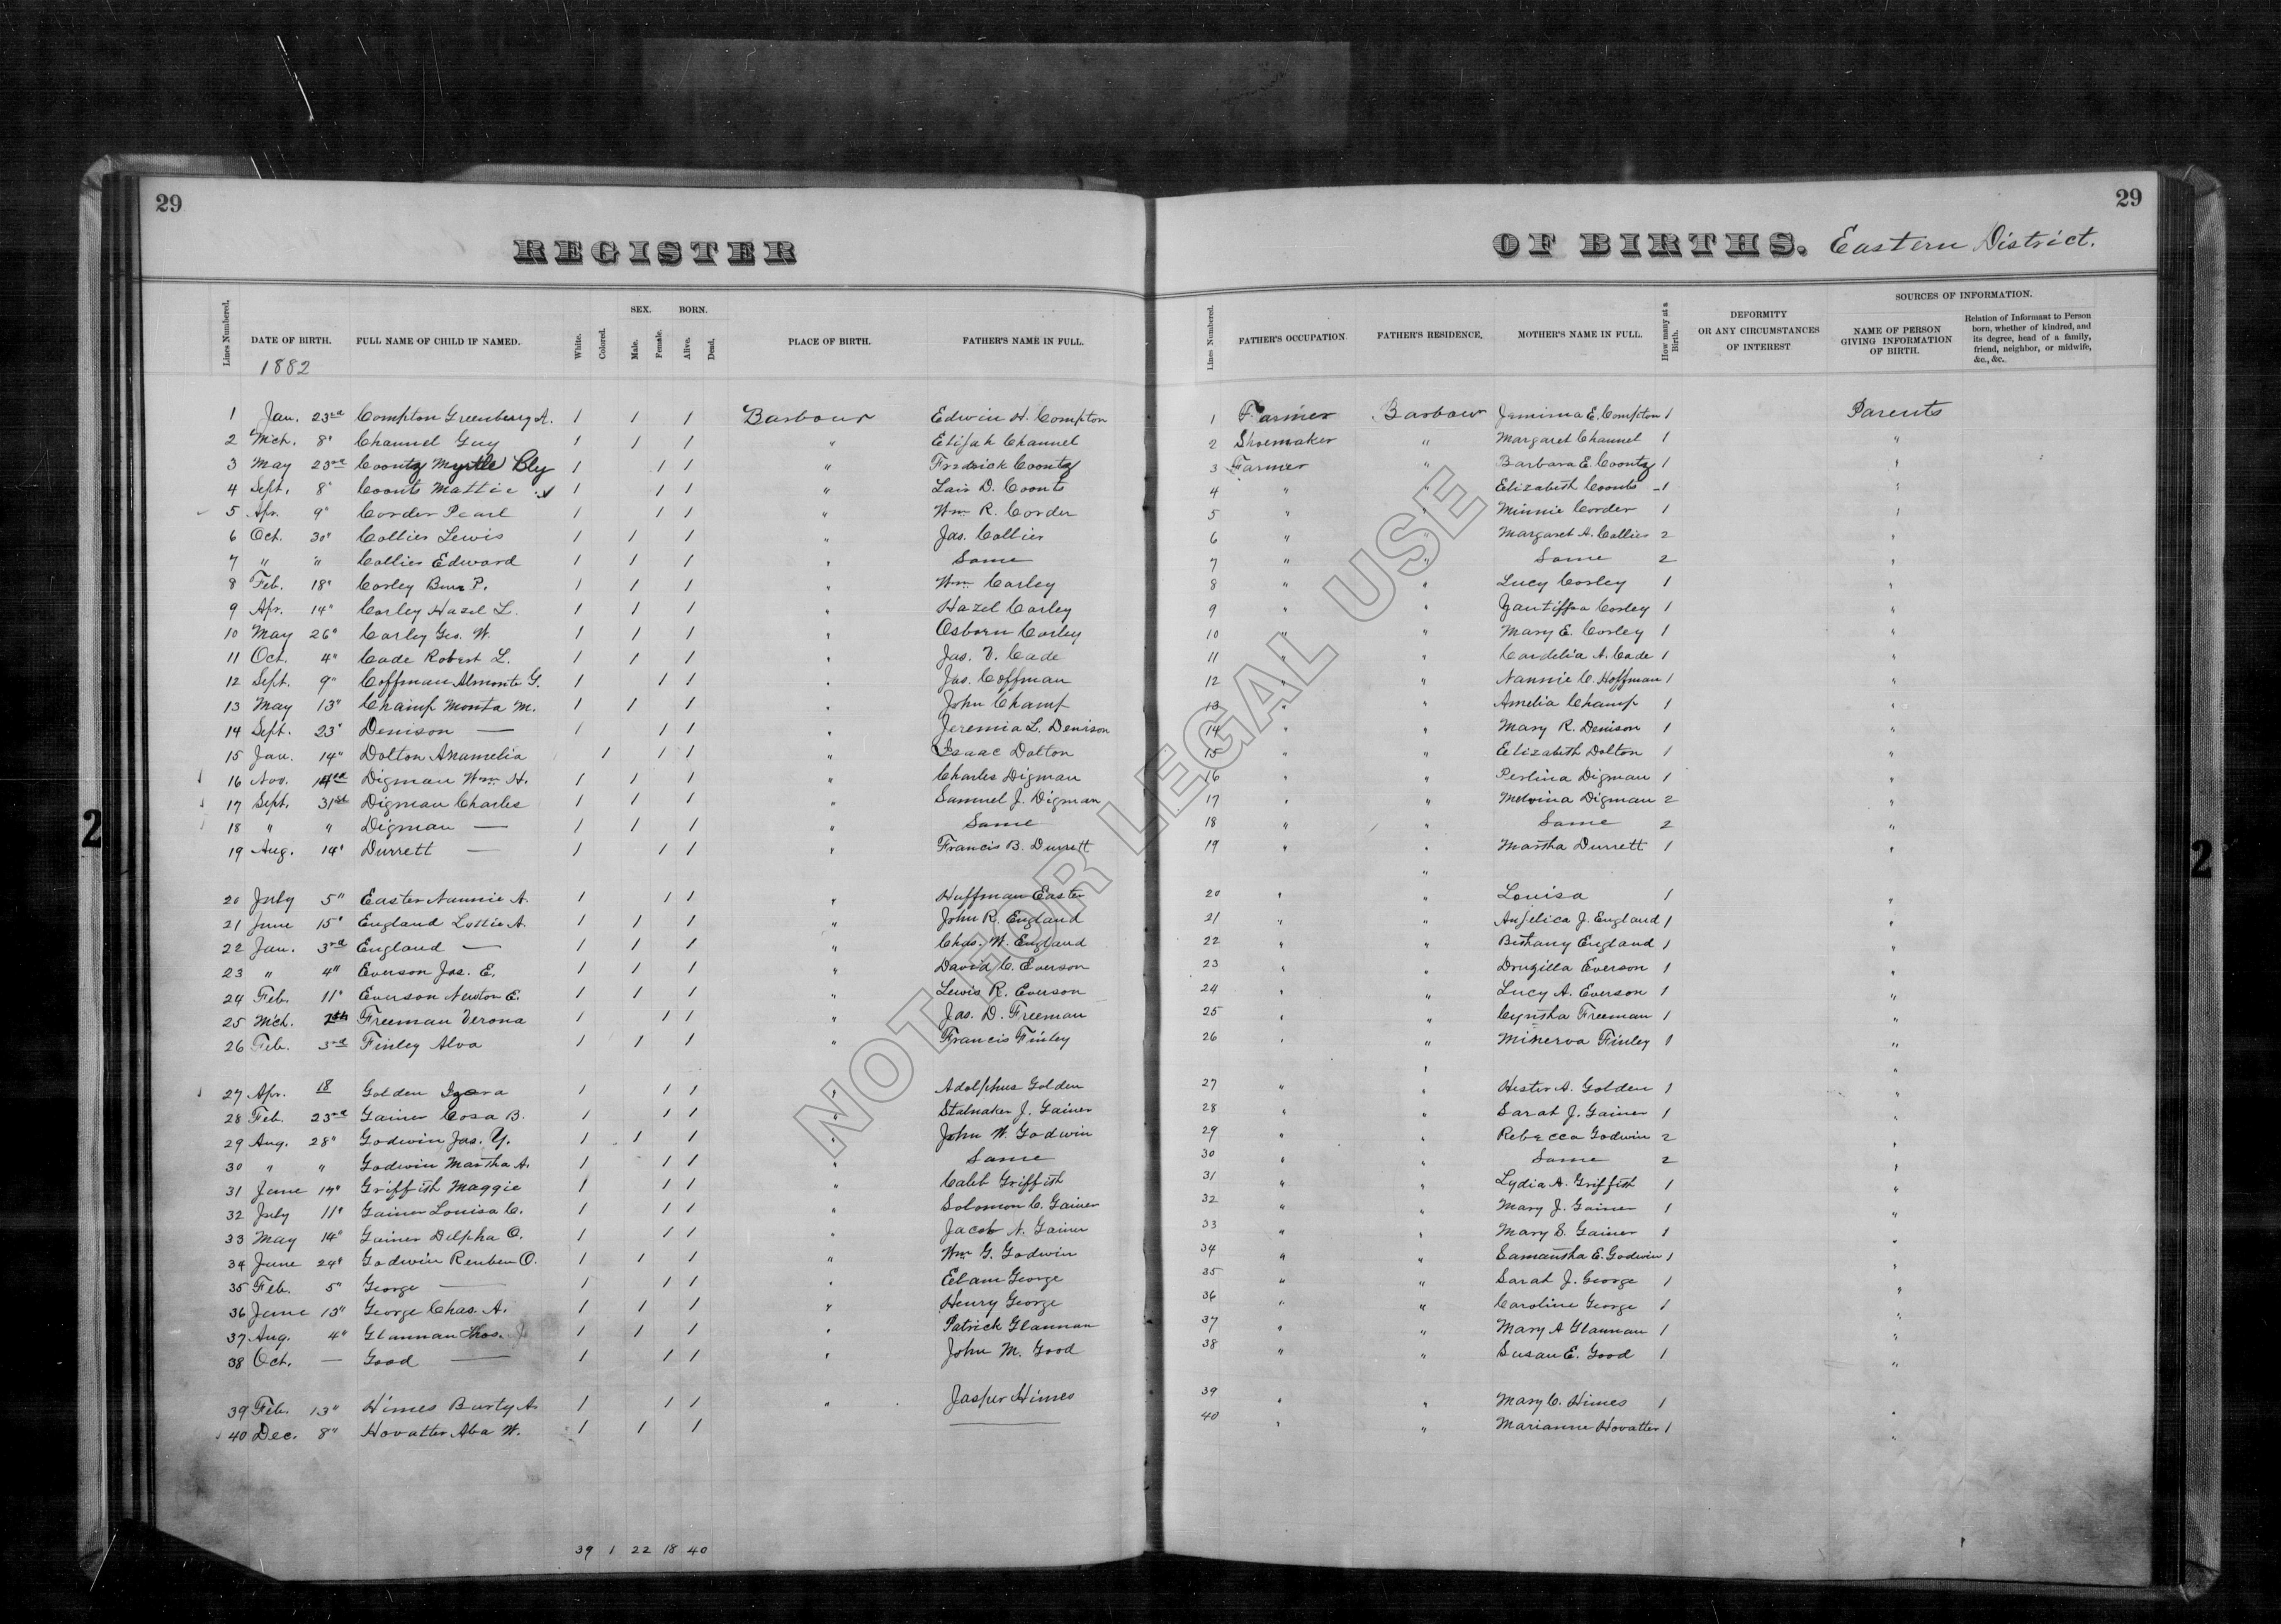 29
29
REGISTER OF BIRTHS. Eastern District.
Lines Numbered. DATE OF BIRTH. FULL NAME OF CHILD IF NAMED. White. Colored. SEX. Male. Female. BORN. Alive. Dead. PLACE OF BIRTH. FATHER'S NAME IN FULL. Lines Numbered. FATHER'S OCCUPATION FATHER'S RESIDENCE, MOTHER'S NAME IN FULL. How many at a Birth. DEFORMITY OR ANY CIRCUMSTANCES OF INTEREST SOURCES OF INFORMATION. NAME OF PERSON GIVING INFORMATION OF BIRTH. Relation of Informant to Person born, whether of kindred, and its degree, head of a family, friend, neighbor, or midwife, &c., &c.
1882
1 Jan. 23rd Compton Greenberry A. 1 1 1 Barbour Edwin H. Compton 1 Farmer Barbour Jemima E. Compton 1 Parents
2 Mch. 8" Channel Guy 1 1 1 " Elijah Channel 2 Shoemaker " Margaret Channel 1 "
3 May 23rd Coontz Myrtle 1 1 1 " Fredrick Coontz 3 Farmer " Barbara E. Coontz 1 "
4 Sept. 8" Coonts Mattie 1 1 1 " D. Coonts 4 " " Elizabeth Coonts 1 "
5 Apr. 9" Corder Pearl 1 1 1 " Wm R. Corder 5 " " Minnie Corder 1 "
6 Oct. 30" Collier Lewis 1 1 1 " Jas. Collier 6 " " Margaret A. Collier 2 "
7 " " Collier Edward 1 1 1 " Same 7 " " Same 2 "
8 Feb. 18" Corley P. 1 1 1 " Wm Corley 8 " " Lucy Corley 1 "
9 Apr. 14" Corley Hazel L. 1 1 1 " Hazel Corley 9 " " Corley 1 "
10 May 26" Corley Geo. W. 1 1 1 " Osborn Corley 10 " " Mary E. Corley 1 "
11 Oct. 4" Cade Robert L. 1 1 1 " Jas. V. Cade 11 " " Cordelia A. Cade 1 "
12 Sept. 9" Coffman Almonte G. 1 1 1 " Jas. Coffman 12 " " Nannie C. Hoffman 1 "
13 May 13" Champ Monta M. 1 1 1 " John Champ 13 " " Amelia Champ 1 "
14 Sept. 23" Denison — 1 1 1 " Jeremia L. Denison 14 " " Mary R. Denison 1 "
15 Jan. 14" Dolton Anamelia 1 1 1 " Isaac Dolton 15 " " Elizabeth Dolton 1 "
16 Nov. Digman Wm H. 1 1 1 " Charles Digman 16 " " Perlina Digman 1 "
17 Sept. 31st Digman Charles 1 1 1 " Samuel J. Digman 17 " " Melvina Digman 2 "
18 " " Digman — 1 1 1 " Same 18 " " Same 2 "
19 Aug. 14" Durrett — 1 1 1 " Francis B. Durrett 19 " " Martha Durrett 1 "
20 July 5" Easter Nannie A. 1 1 1 " Huffman Easter 20 " " Louisa 1 "
21 June 15" England Lottie A. 1 1 1 " John R. England 21 " " Anjelica J. England 1 "
22 Jan. 3rd England — 1 1 1 " Chas. W. England 22 " " Bethany England 1 "
23 " 4" Everson Jas. E. 1 1 1 " David C. Everson 23 " " Druzilla Everson 1 "
24 Feb. 11" Everson Newton E. 1 1 1 " Lewis R. Everson 24 " " Lucy A. Everson 1 "
25 Mch. 7th Freeman Verona 1 1 1 " Jas. D. Freeman 25 " " Cyntha Freeman 1 "
26 Feb. 3rd Finley Alva 1 1 1 " Francis Finley 26 " " Minerva Finley 1 "
27 Apr. 18 Golden 1 1 1 " Adolphus Golden 27 " " Hester A. Golden 1 "
28 Feb. 23rd Gainer Cosa B. 1 1 1 " Stalnaker J. Gainer 28 " " Sarah J. Gainer 1 "
29 Aug. 28" Godwin Jas. Y. 1 1 1 " John W. Godwin 29 " " Rebecca Godwin 2 "
30 " " Godwin Martha A. 1 1 1 " Same 30 " " Same 2 "
31 June 17" Griffith Maggie 1 1 1 " Caleb Griffith 31 " " Lydia A. Griffith 1 "
32 July 11" Gainer Louisa C. 1 1 1 " Solomon C. Gainer 32 " " Mary J. Gainer 1 "
33 May 14" Gainer Delpha O. 1 1 1 " Jacob N. Gainer 33 " " Mary S. Gainer 1 "
34 June 24" Godwin Reuben O. 1 1 1 " Wm G. Godwin 34 " " Samantha E. Godwin 1 "
35 Feb. 5" George — 1 1 1 " Elam George 35 " " Sarah J. George 1 "
36 June 13" George Chas. A. 1 1 1 " Henry George 36 " " Caroline George 1 "
37 Aug. 4" Glannan Thos. J 1 1 1 " Patrick Glannan 37 " " Mary A Glannan 1 "
38 Oct. — Good — 1 1 1 " John M. Good 38 " " Susan E. Good 1 "
39 Feb. 13" Himes Burty A. 1 1 1 " Jasper Himes 39 " " Mary C. Himes 1 "
40 Dec. 8" Hovatter Aba W. 1 1 1 — 40 " " Marianne Hovatter 1 "
39 1 22 18 40
2
2
NOT FOR LEGAL USE